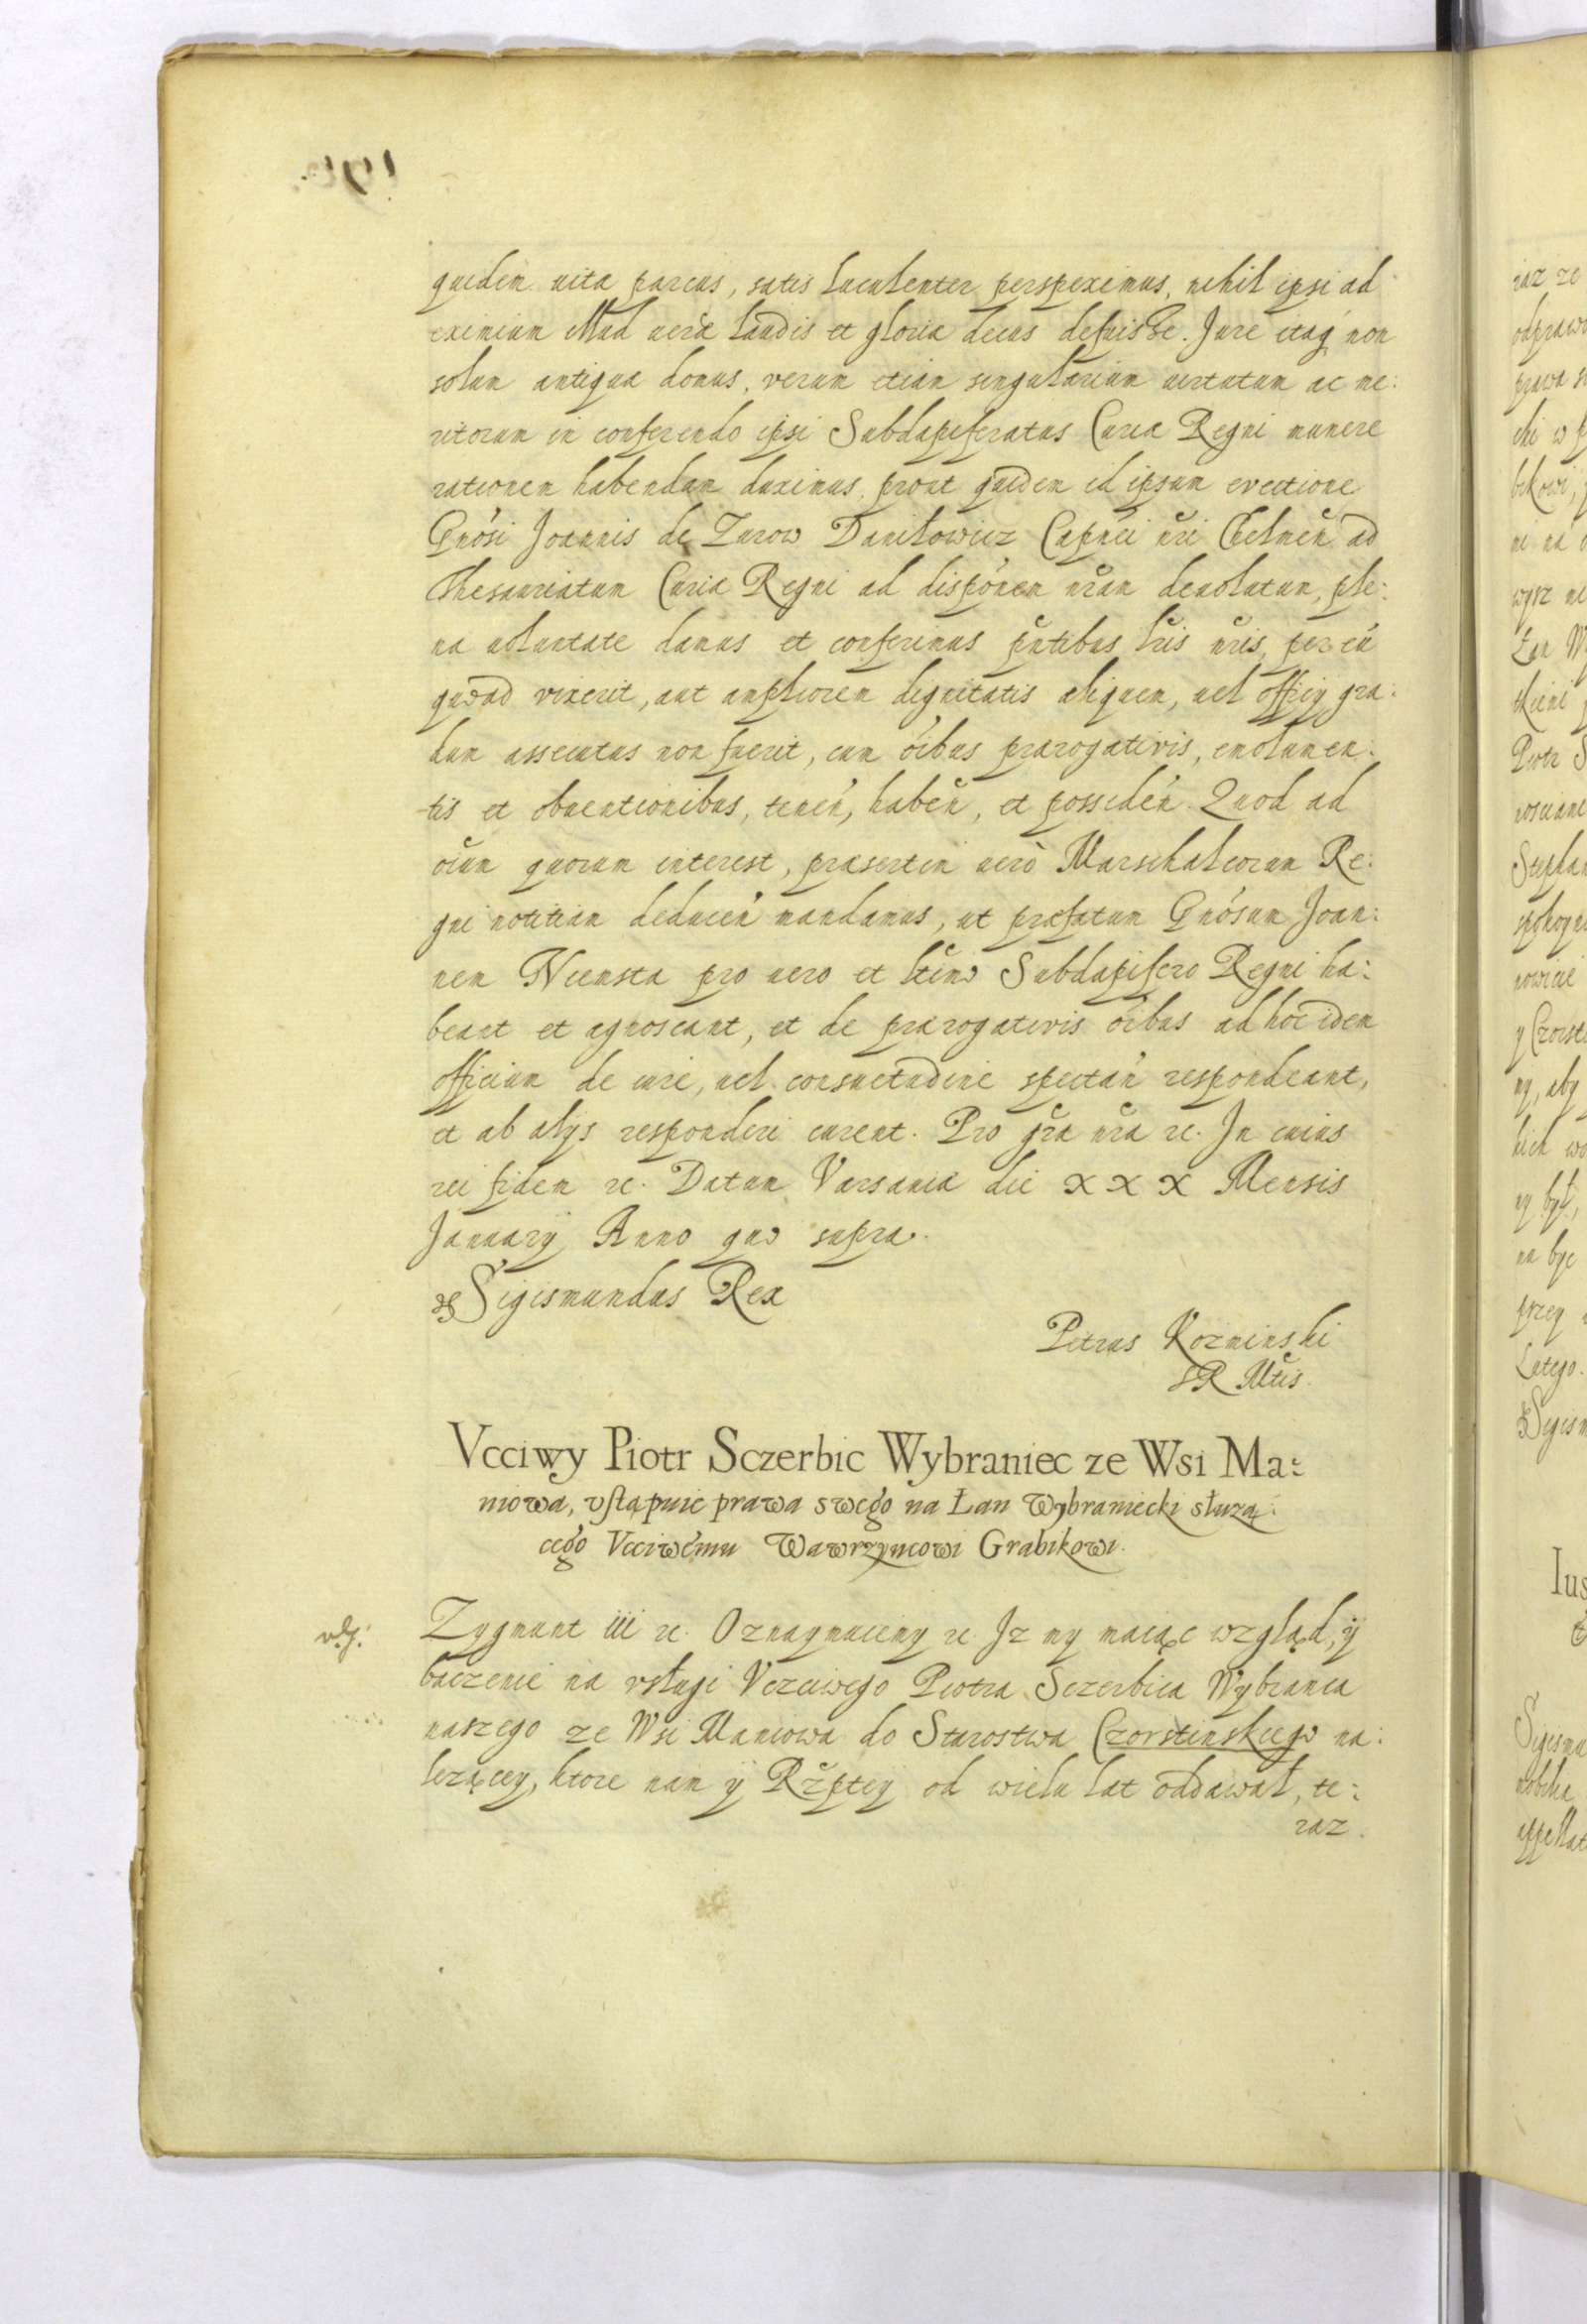 quidem uita parcus, satis luculenter perspeximus, nihil ipsi ad
eximium illud veræ laudis et gloriæ decus defuisse. Jure itaq́ non
solum antiquæ domus, verum etiam singularium uirtutum ac me:
ritorum in conferendo ipsi Subdapiferatus Curiæ Regni munere
rationem habendam duximus, prout quidem id ipsum evectione
Gnosi Joannis de Zurow Daniłowicz Capnei nri Chelmen ad
Thesauriatum Curiæ Regni ad disponem nram deuolutum, ple:
na uoluntate damus et conferimus pntibus lris nris, per eũ
quoad vixerit, aut ampliorem dignitatis aliquem, uel officij gra:
dum assecutus non fuerit, cum oibus prærogativis, emolumen:
tis et obuentionibus, tenen, haben, et possiden. Quod ad
oium quorum interest, præsertim uerò Marschalcorum Re:
gni notitiam deducen mandamus, ut præfatum Gnosum Joan:
nem Wiensta pro uero et ltimo Subdapifero Regni ha:
beant et agnoscant, et de prærogativis oibus ad hoc idem
officium de iure, uel consuetudine spectan respondeant,
et ab alijs responderi curent. Pro gra nra rc. In cuius
rei fidem rc. Datum Varsauiæ die XXX Mensis
Januarij Anno quo supra.
Sigismundus Rex
Petrus Kozminski
SR Mtis.
Vcciwy Piotr Sczerbic Wybraniec ze Wsi Ma:
niowa, vstąpuie prawa swego na Łan Wybraniecki służą:
cego Vcciwemu Wawrzyncowi Grabikowi.
Zygmunt iii rc. Oznaymuiemy rc. Iz my maiąc wzgląd, ÿ
baczenie na vsługi Vczciwego Piotra Sczerbica Wybranca
naszego ze Wsi Maniowa do Starostwa Czorstinskiego na:
lezącey, ktore nam ÿ Rzptey od wielu lat oddawał, te:
raz.